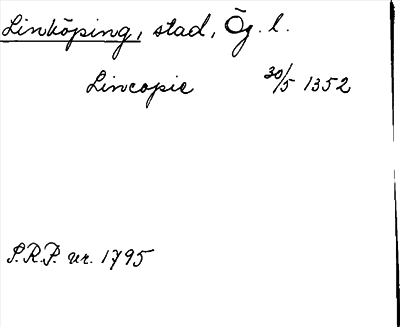 Linköping, stad, Ög. l.
Lincopie 30/5 1352
S.R.P. nr. 1795